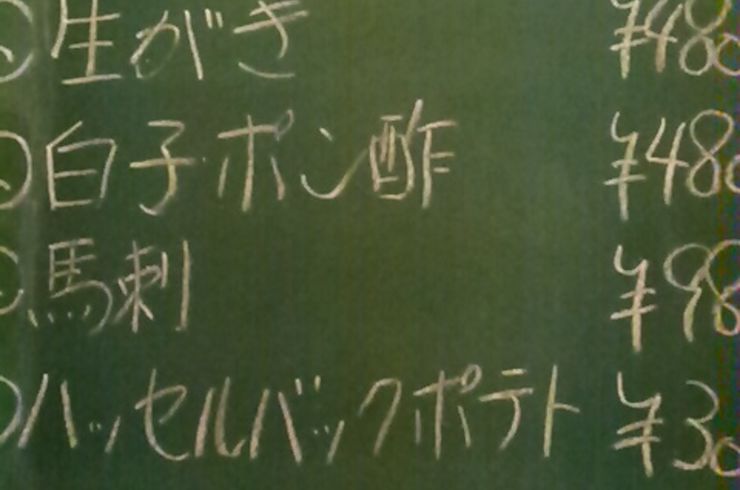 生がき ¥480
白子ポン酢 ¥480
馬刺 ¥98
ハッセルバックポテト ¥30